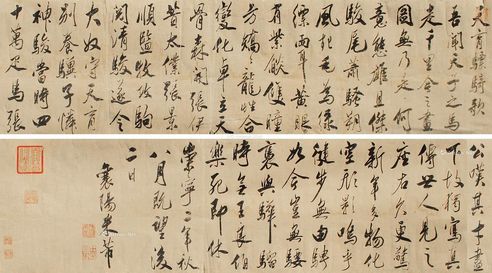 天育驃騎歌
吾聞天子之馬
走千里今之畫
圖無乃是何
意態雄且傑
駿尾蕭騷朔
風起毛爲綠
縹兩耳黃眼
有紫燄雙瞳
方矯矯龍性合
變化卓立天
骨森開張伊
昔太僕張景
順監牧收駒
閱清駿遂令
大奴守天育
別養驥子憐
神駿當時四
十萬疋馬張
公嘆其才盡
下故獨寫真
傳世人見之
座右久更
新年多物化
空形影嗚乎
健步無由騁
如今豈無騕
褭與驊騮
時無王良伯
樂死即休
崇寧二年秋
八月既望後
二日
襄陽米芾